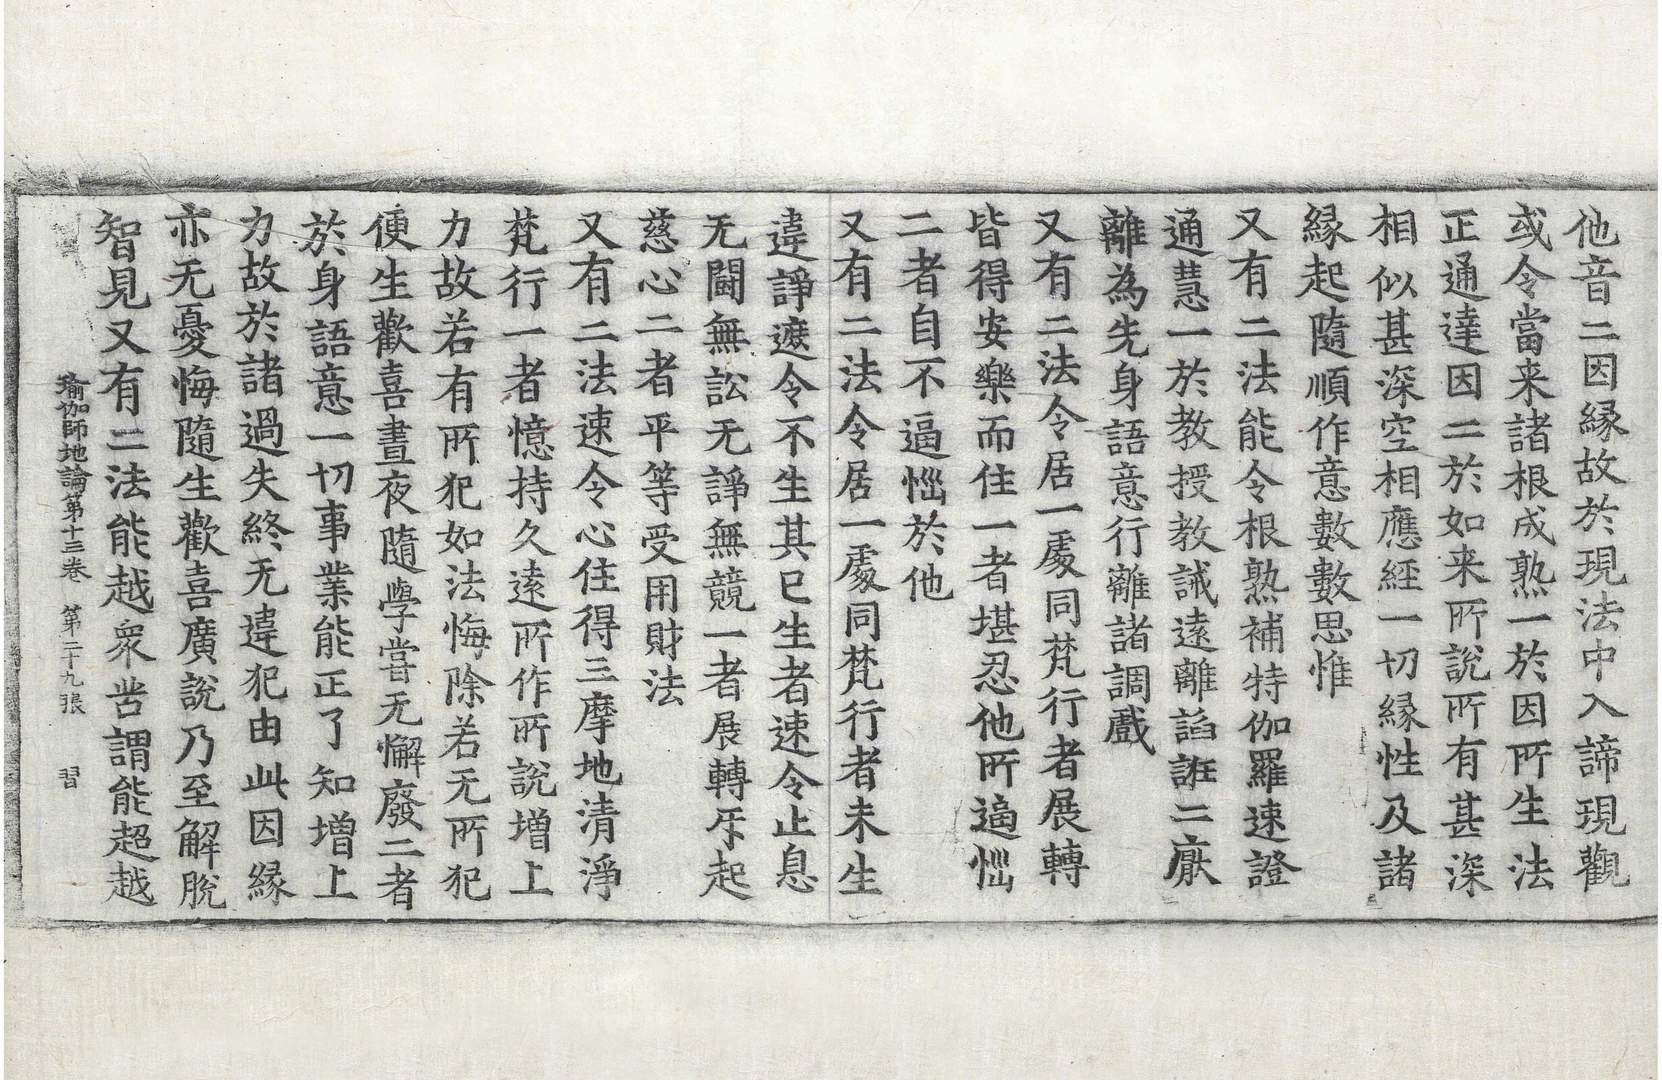 他音二因縁故於現法中入諦現觀
或令當来諸根成熟一於因所生法
正通達因二於如来所說所有甚深
相似甚深空相應經一切縁性及諸
縁起隨順作意數數思惟
又有二法能令根熟補特伽羅速證
通慧一於教授教誡遠離諂誑二猒
離為先身語意行離諸調戲
又有二法令居一處同梵行者展轉
皆得安樂而住一者堪忍他所逼惱
二者自不逼惱於他
又有二法令居一處同梵行者未生
違諍遮令不生其已生者速令止息
无鬪無訟无諍無競一者展轉互起
慈心二者平等受用財法
又有二法速令心住得三摩地清淨
梵行一者憶持久遠所作所說增上
力故若有所犯如法悔除若无所犯
便生歡喜晝夜隨學嘗无懈廢二者
於身語意一切事業能正了知增上
力故於諸過失終无違犯由此因縁
亦无憂悔隨生歡喜廣說乃至解脫
智見又有二法能越衆苦謂能超越
瑜伽師地論第十三卷　第二十九張　習